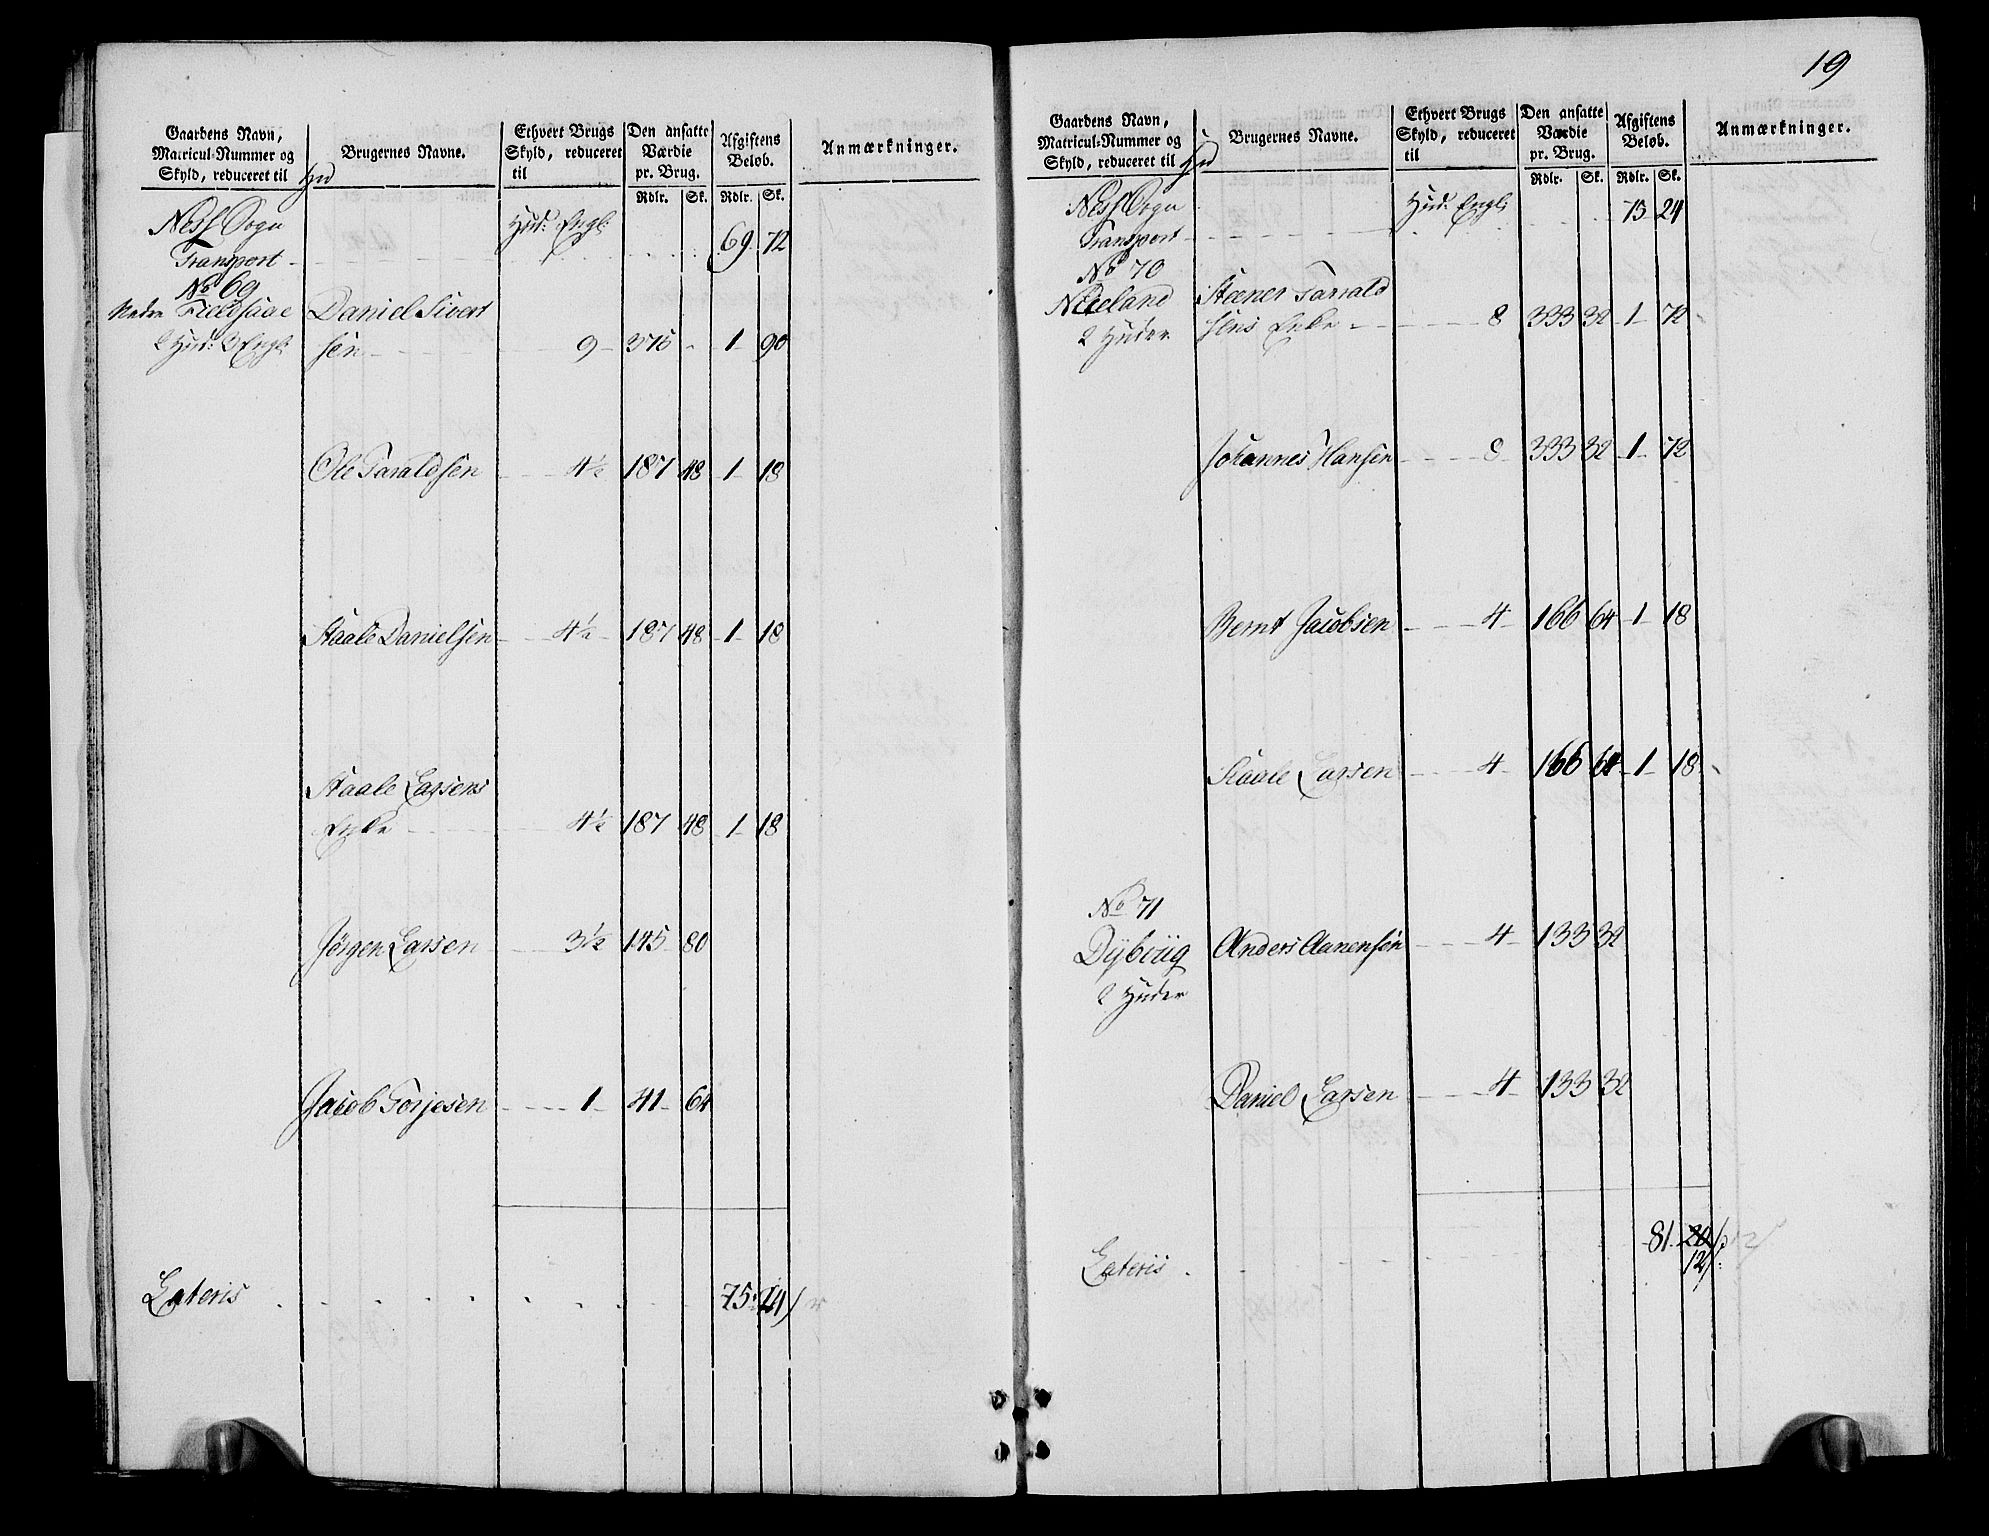 Gaardens Navn, Matricul-Nummer og Skyld, reduceret til Hud
Brugernes Navne.
Ethvert Brugs Skyld, reduceret til
Den ansatte Værdie pr. Brug.
Afgiftens Beløb.
Anmærkninger.
Rdlr. Sk. Rdlr. Sk.
Ness Sogn Hud: Engl:
Transport 69 72
No 69
Nedre Fieldsaae Daniel Sivert
2 Hud: 3 Engl: sen 9 375 - 1 90
Ole Taraldsen 4½ 187 48 1 18
Staale Danielsen 4½ 187 48 1 18
Staale Larsens
Enke 4½ 187 48 1 18
Jørgen Larsen 3½ 145 80
Jacob Torjesen 1 41 64
Lateris 75 24
19
Gaardens Navn, Matricul-Nummer og Skyld, reduceret til Hud
Brugernes Navne.
Ethvert Brugs Skyld, reduceret til
Den ansatte Værdie pr. Brug.
Afgiftens Beløb.
Anmærkninger.
Rdlr. Sk. Rdlr. Sk.
Ness Sogn Hud: Engl: 75 24
Transport
No 70
Neeland Steener Tarrald
2 Huder sens Enke 8 333 32 1 72
Johannes Hansen 8 333 32 1 72
Bernt Jacobsen 4 166 64 1 18
Staale Larsen 4 166 64 1 18
No 71
Dybvig Anders Aanensen 4 133 32
2 Huder
Daniel Larsen 4 133 32
Lateris 81 20
12